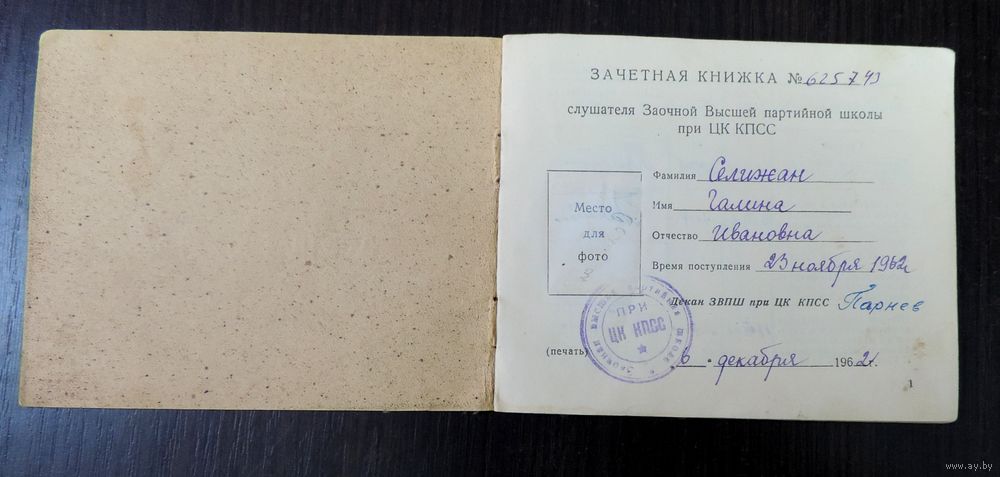 ЗАЧЕТНАЯ КНИЖКА № 625743
слушателя Заочной Высшей партийной школы
при ЦК КПСС
Место
для
фото
Фамилия Селижан
Имя Галина
Отчество Ивановна
Время поступления 23 ноября 1962г
Декан ЗВПШ при ЦК КПСС Парнев
ПРИ
ЦК КПСС
(печать)
6 декабря 1962г.
1
www.ay.by